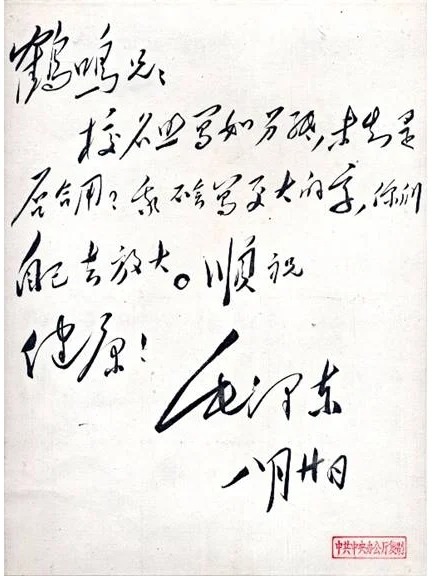 鶴鳴兄：
校名照寫如另纸，未知是
否合用？我不会寫更大的字，你们
自己去放大。順祝
健康！
毛泽东
八月廿日
中共中央办公厅复制